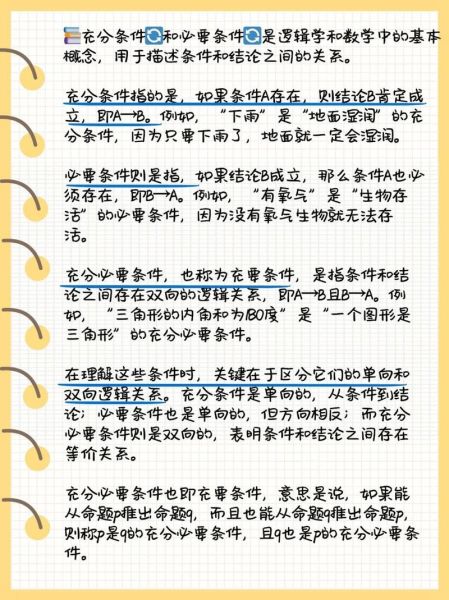 📚充分条件🔄和必要条件🔄是逻辑学和数学中的基本
概念，用于描述条件和结论之间的关系。
充分条件指的是，如果条件A存在，则结论B肯定成
立，即A→B。例如，“下雨”是“地面湿润”的充
分条件，因为只要下雨了，地面就一定会湿润。
必要条件则是指，如果结论B成立，那么条件A也必
须存在，即B→A。例如，“有氧气”是“生物存
活”的必要条件，因为没有氧气生物就无法存
活。
充分必要条件，也称为充要条件，是指条件和结
论之间存在双向的逻辑关系，即A→B且B→A。例
如，“三角形的内角和为180度”是“一个图形是
三角形”的充分必要条件。
在理解这些条件时，关键在于区分它们的单向和
双向逻辑关系。充分条件是单向的，从条件到结
论；必要条件也是单向的，但方向相反；而充分
必要条件则是双向的，表明条件和结论之间存在
等价关系。
充分必要条件也即充要条件，意思是说，如果能
从命题p推出命题q，而且也能从命题q推出命题p，
则称p是q的充分必要条件，且q也是p的充分必要条
件。